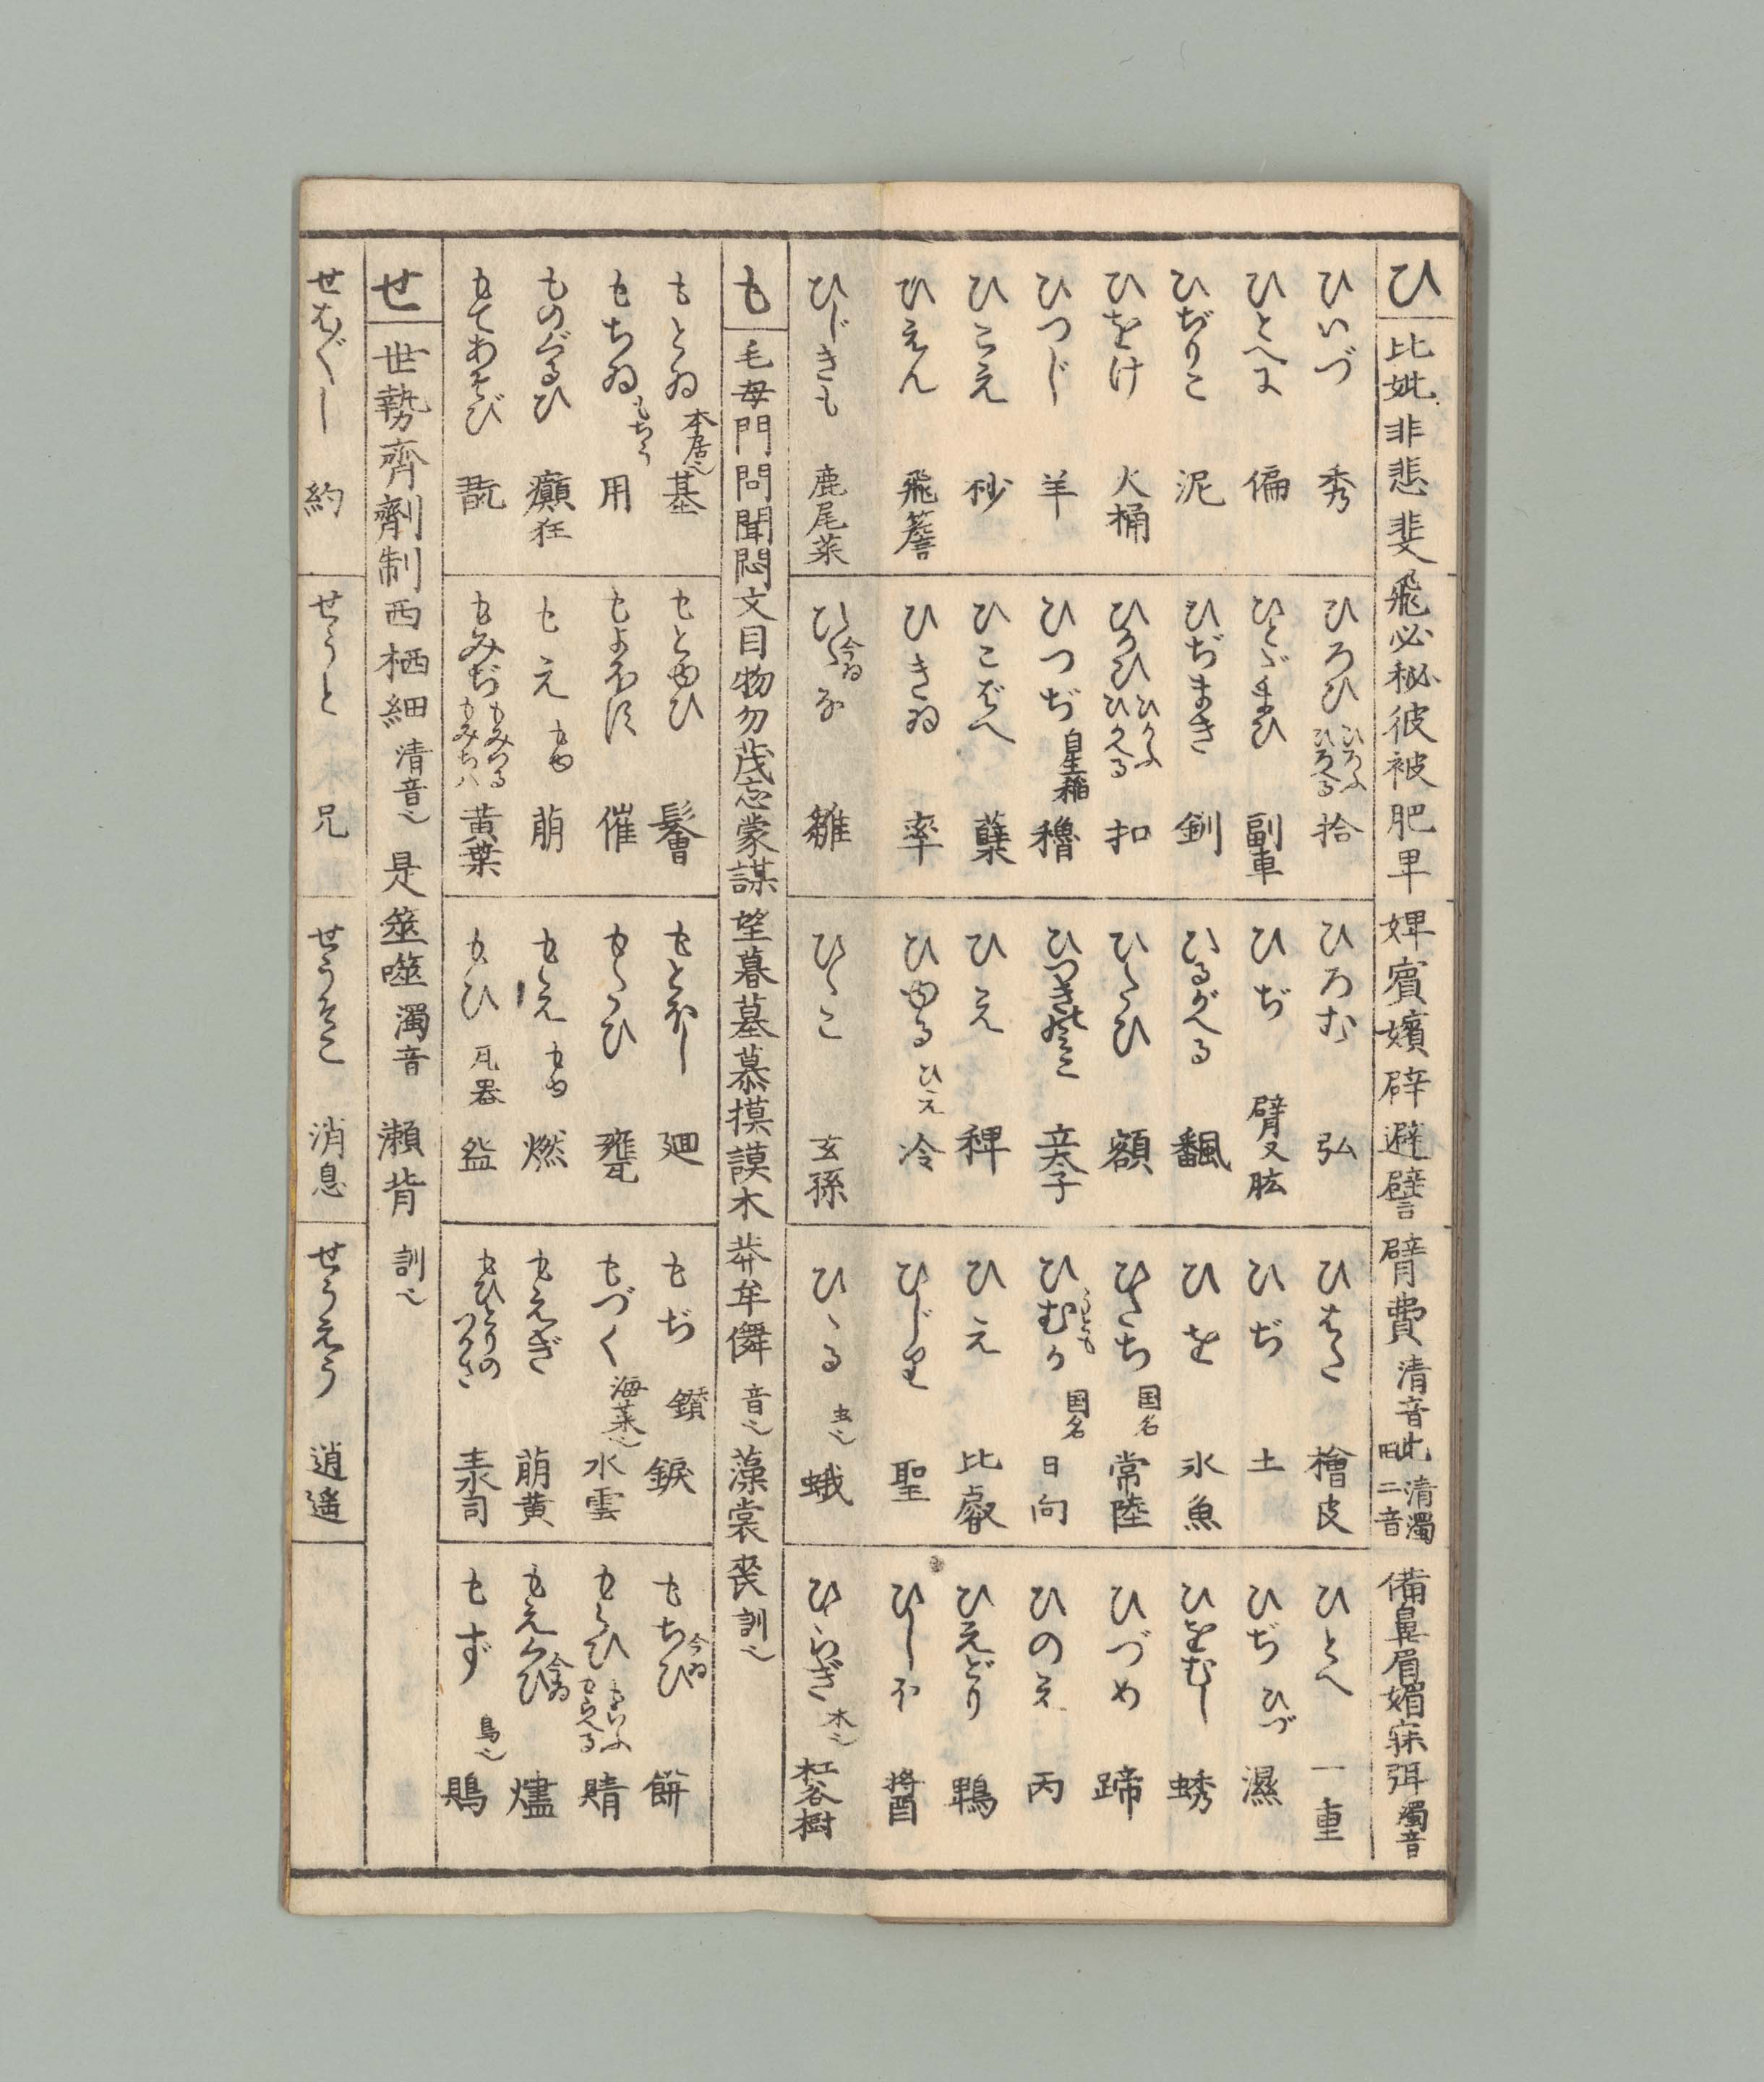 ひ 比妣非悲斐飛必秘彼被肥卑婢賓嬪辟避譬臂費 清音 比毗 清濁二音 備鼻眉媚寐弭 濁音
ひいづ 秀 ひろひ ひろふ ひろへる 拾 ひろむ 弘 ひはた 檜皮 ひとへ 一重
ひとへに 偏 ひとだまひ 副車 ひぢ 臂又肱 ひぢ 土 ひぢ ひづ 濕
ひぢりこ 泥 ひぢまき 釧 ひるがへる 飜 ひを 氷魚 ひをむし 蜏
ひをけ 火桶 ひかひ ひかふ ひかへる 扣 ひたひ 額 ひたち 国名 常陸 ひづめ 蹄
ひつじ 羊 ひつぢ 自生稲 穭 ひつぎのみこ 立太子 ひむか 国名 日向 ひのえ 丙
ひこえ 杪 ひこばへ 蘖 ひえ 稗 ひえ 比叡 ひえどり 鵯
ひえん 飛簷 ひきゐ 率 ひゆる ひえ 冷 ひじり 聖 ひしほ 醤
ひじきも 鹿尾菜 ひゝな 今ゐ 雛 ひゝこ 玄孫 ひゝる 虫也 蛾 ひゝらぎ 木也 杠谷樹
も 毛母門問聞悶文目物勿茂忘蒙謀望暮墓慕摸謨木莽牟儛 音也 藻裳喪 訓也
もとゐ 本居也 基 もとゆひ 髻 もとほし 廻 もぢ 鑚 錑 もちひ 今ゐ 餅
もちゐ もちう 用 もよほす 催 もたひ 甕 もづく 海菜也 水雲 もらひ もらふ もらへる 賭
ものぐるひ 癲狂 もえ もゆ 萠 もえ もゆ 燃 もえぎ 萠黄 もえくひ 今ゐ 燼
もてあそび 翫 もみぢ もみつる もみちハ 黄葉 もひ 瓦器 盌 もひとりのつかさ 主水司 もず 鳥也 鵙
せ 世勢齊劑制西栖細 清音也 是筮噬 濁音 瀬背 訓也
せはぐし 約 せうと 兄 せうそこ 消息 せうえう 逍遥